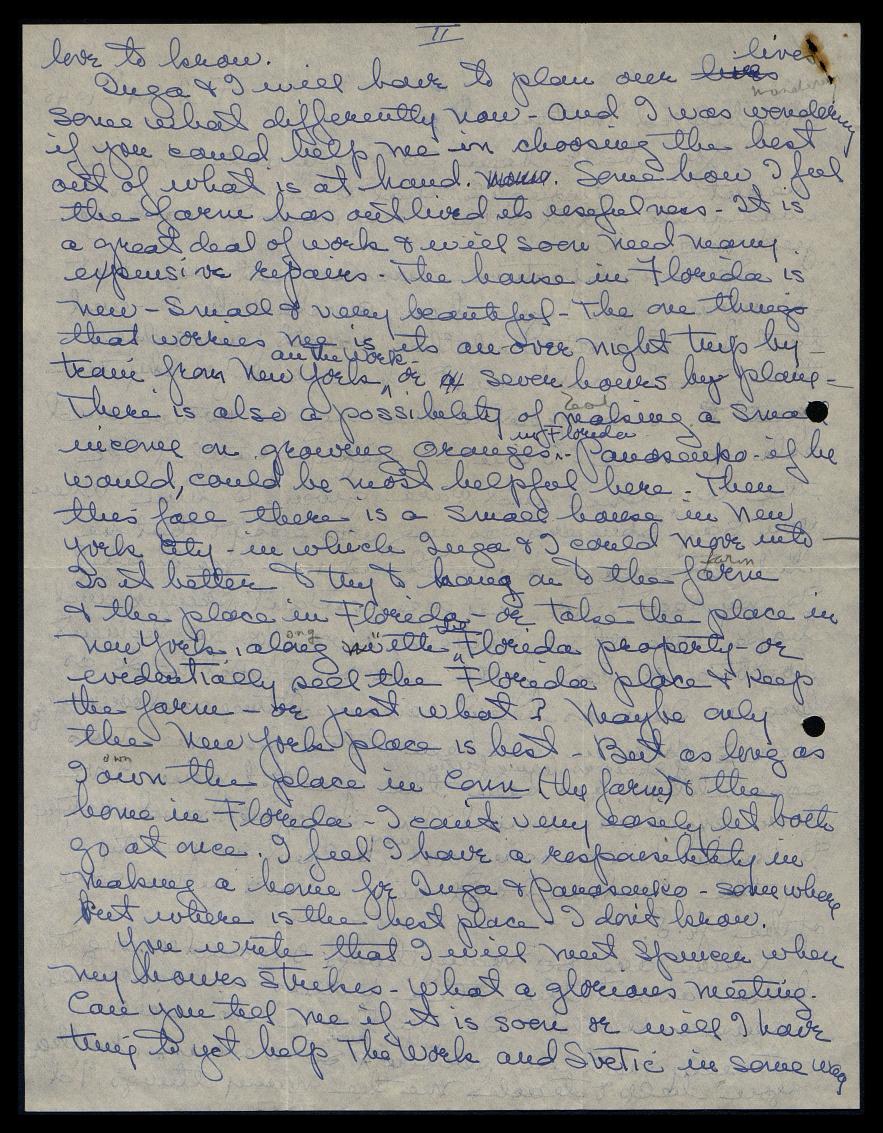 II
love to know.
Inga & I will have to plan our lives lives
wondering
some what differently now - and I was wondering
if you could help me in choosing the best
out of what is at hand. Some how I feel
the farm has outlived its usefulness - It is
a great deal of work & will soon need many
expensive repairs - The house in Florida is
new - Small & very beautiful - The one things
that worries me is its an over night trip by -
and the Work -
train from New York, or seven hours by plane -
There is also a possibility of making a small
in Florida
income on growing oranges - Panasenko - if he
would, could be most helpful here - Then
this fall there is a small house in New
York City - in which Inga & I could move into -
farm
Is it better to try to hang on to the farm
& the place in Florida - or take the place in
ong the
New York, along with Florida property - or
evidentially sell the Florida place & keep
the farm - or just what? Maybe only
the New York place is best - But as long as
own
I own the place in Conn (the farm) & the
home in Florida - I can't very easely let both
go at once. I feel I have a responsibility in
making a home for Inga & Panasenko - some where
but where is the best place - I don't know.
You wrote that I will meet Spencer when
my hours strikes - what a glorious meeting.
Can you tell me if it is soon or will I have
time to yet help The Work and Svetic in some way